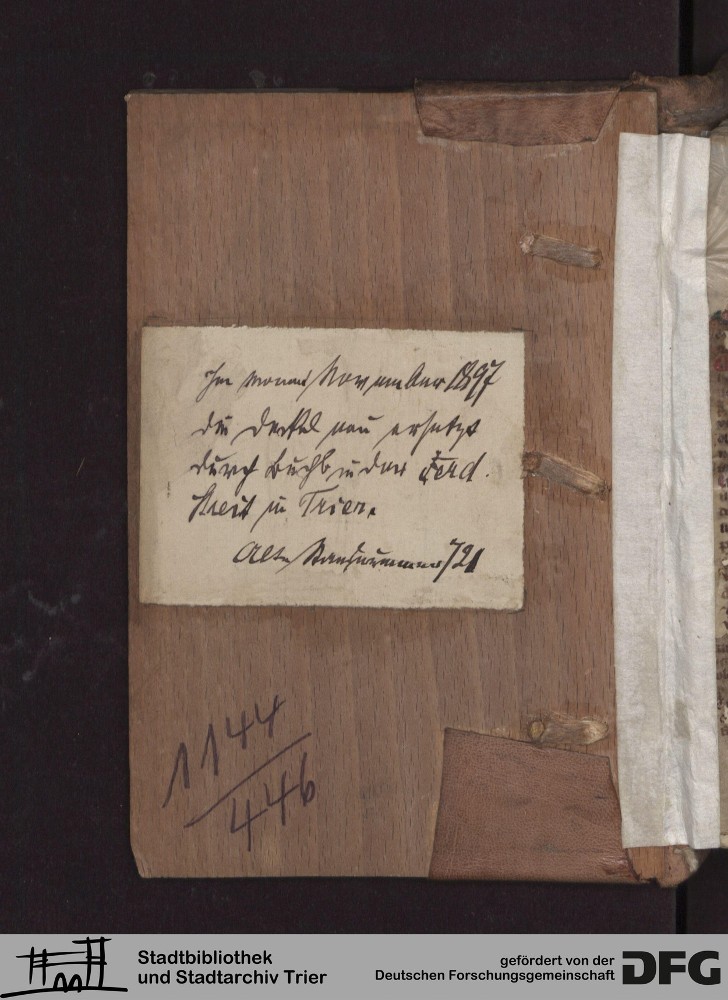 Im Monat November 1897
die Deckel neu ersetzt
durch Buchbinder Ferd.
in Trier.
Alte 721
1144
446
Stadtbibliothek
und Stadtarchiv Trier
gefördert von der
Deutschen Forschungsgemeinschaft
DFG